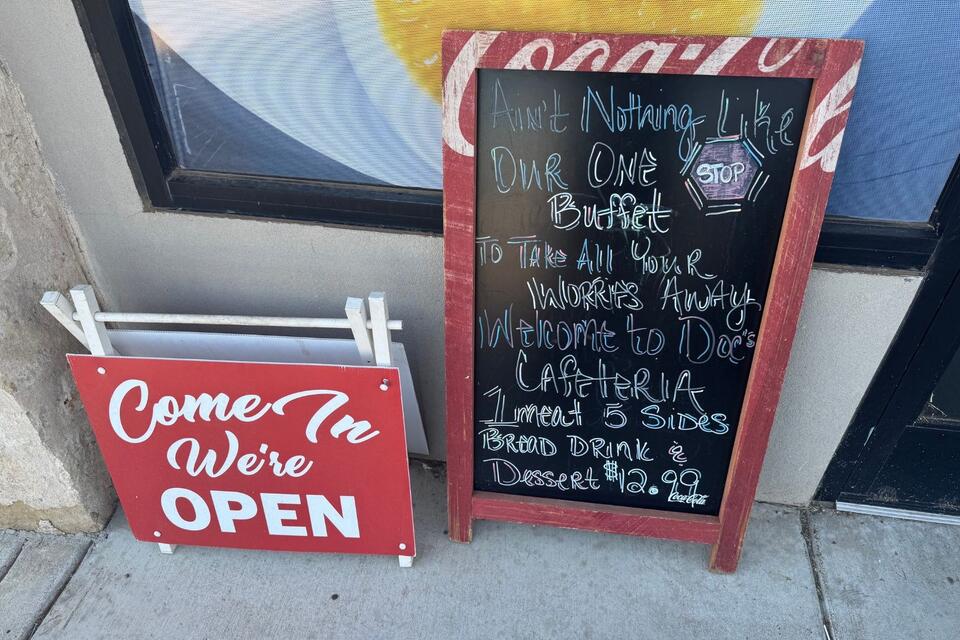 Coca-Cola
Ain't Nothing Like
Our One STOP
Buffet
To Take All Your
Worries Away
Welcome to Doc's
Cafeteria
1 meat 5 Sides
Bread Drink &
Dessert $12.99
Coca-Cola
Come In
We're
OPEN